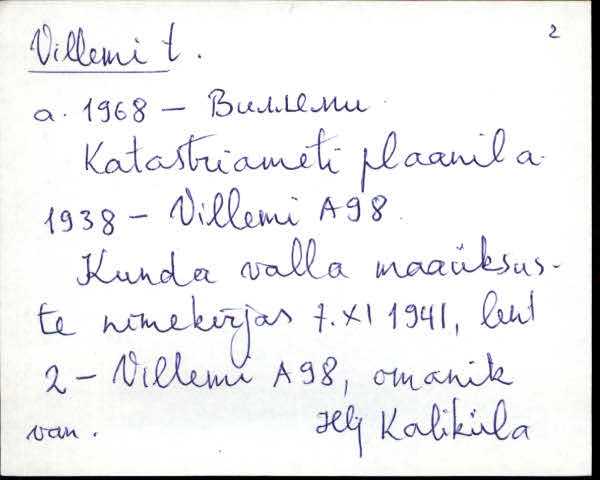 2
Villemi t.
a. 1968 – Виллеми
Katastriameti plaanil a.
1938 – Villemi A98.
Kunda valla maaüksus-
te nimekirjas 7.XI 1941, leht
2 – Villemi A98, omanik
van. Kaliküla